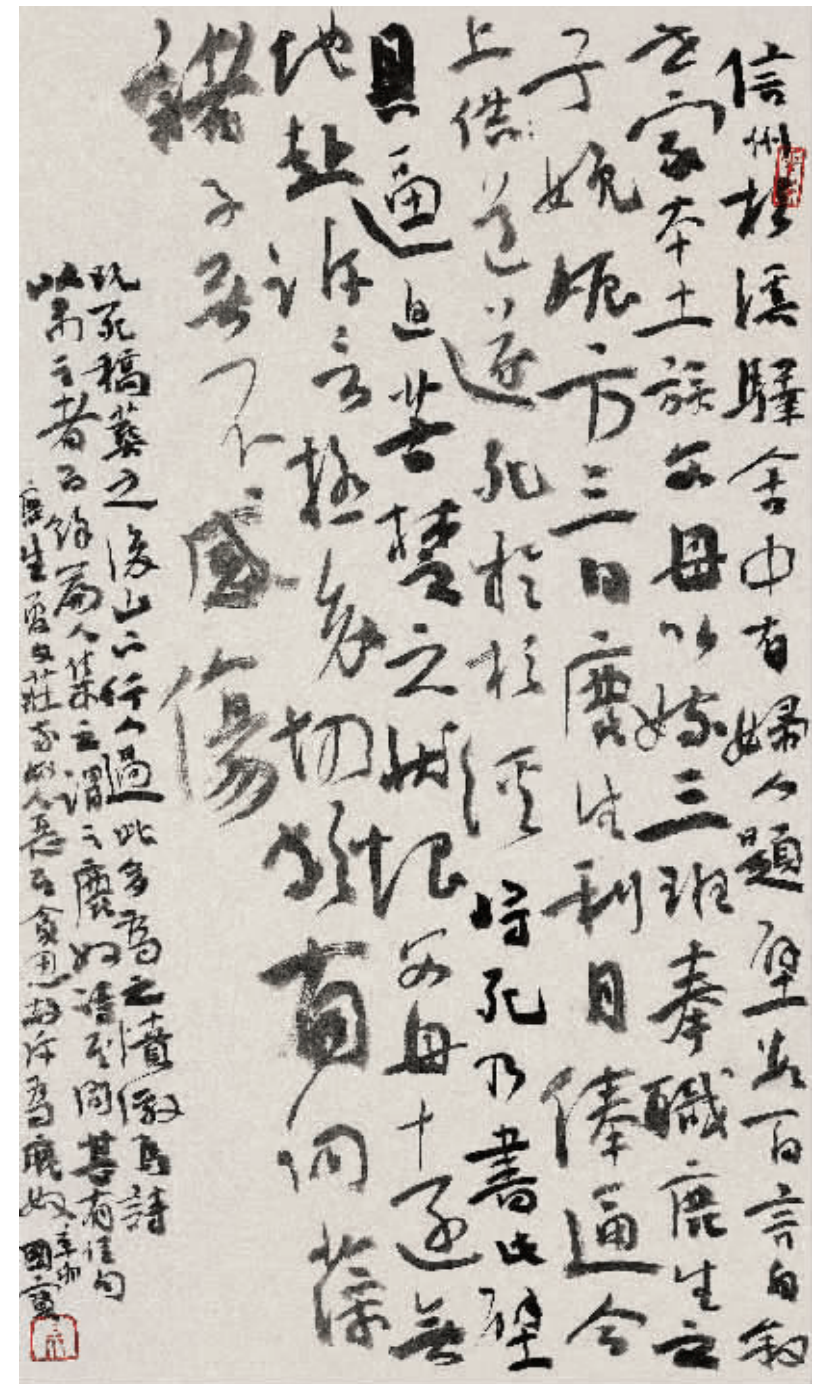 信州杉溪驛舍中有婦人題壁數百言自敘
世家本土族父母以嫁三班奉職鹿生之
子娩娠方三日鹿生利月俸逼令
上道遂死於杉溪將死乃書此壁
具逼迫苦楚之狀恨父母遠無
地赴訴言極哀切頗有詞藻
諸子無不感傷
既死稿葬之後山下行人過此多為之憤激為詩
以弔之者百餘篇人集之謂之鹿奴詩其間甚有佳句
鹿生夏文莊家奴人惡其貪忍故斥為鹿奴辛卯國